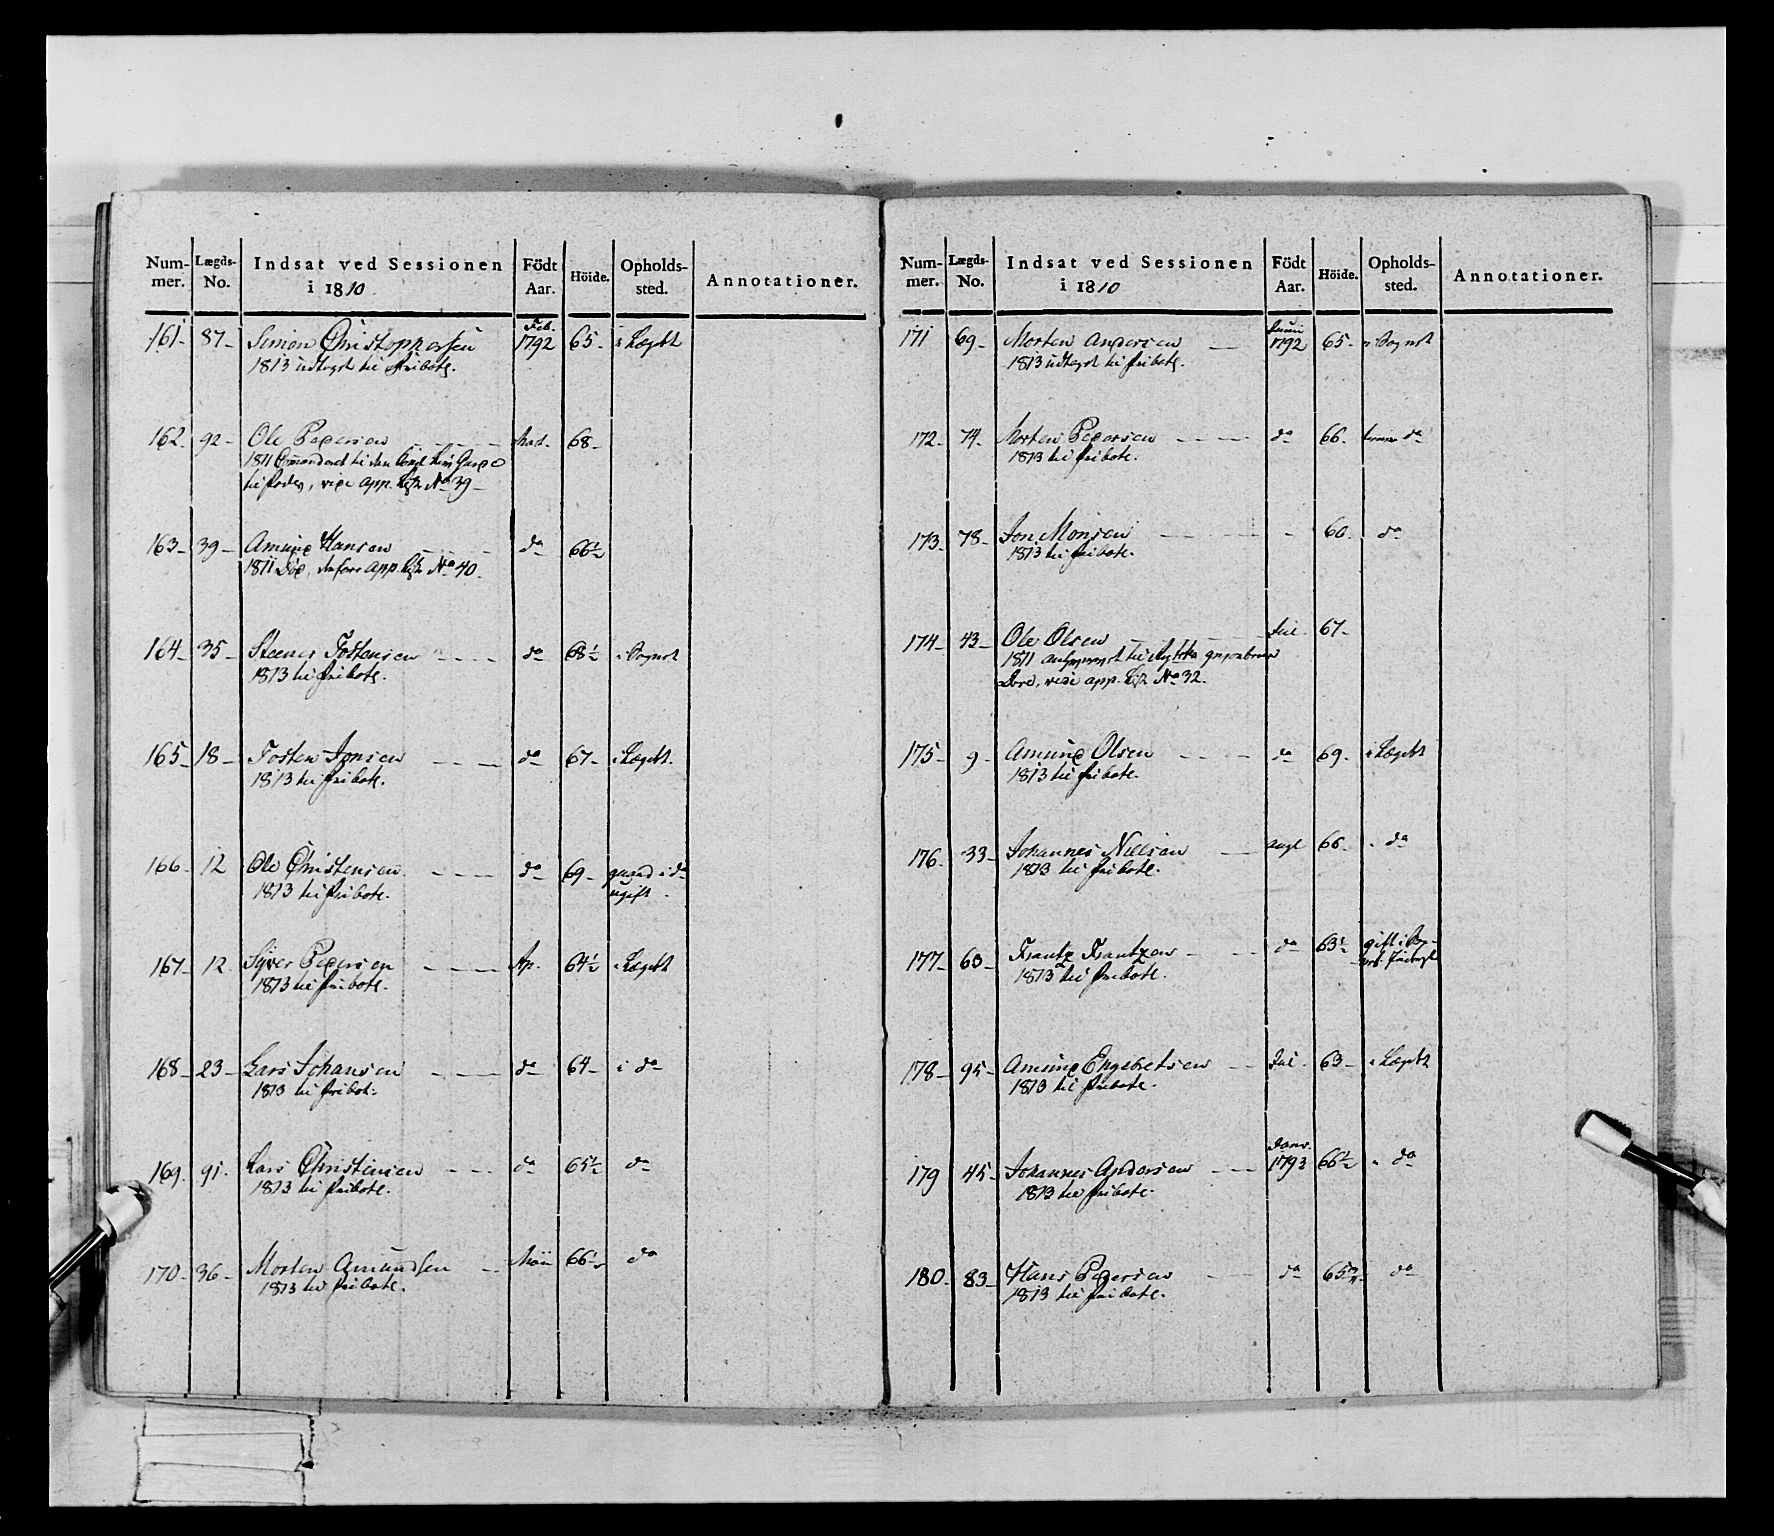 Num- Lægds- Indsat ved Sessionen Födt Höide. Opholds- Annotationer.
mer. No. i 1810. Aar. sted.
161 87 Simon Christophersen Feb. 1792 65 i Lægdt
1813 udtagst til fribat.
162 92 Ole Pedersen Mart. 68
1811 Commanderet til den Kongl
vide app. No 39
163 39 Amund Hansen do 66½
1811 Död, app. No 40.
164 35 Steener Tostensen do 68½ i Sognet
1813 til fribat.
165 18 Tosten Jonsen do 67 i Lægdt
1813 til fribat.
166 12 Ole Christensen do 69 i do
1813 til fribat. ugift
167 12 Syver Pedersen Ap. 64½ i Lægdt
1813 til fribat.
168 23 Lars Johansen do 64 i do
1813 til fribat.
169 91 Lars Christensen do 65½ do
1813 til fribat.
170 36 Morten Amundsen Mai 66½ do
1813 til fribat.
Num- Lægds- Indsat ved Sessionen Födt Höide. Opholds- Annotationer.
mer. No. i 1810 Aar. sted.
171 69 Morten Andersen Juni 1792 65 i Sognet
1813 udtagst til fribat.
172 74 Morten Pedersen do 66 do
1813 til fribat.
173 78 Jon Monsen 60 do
1813 til fribat.
174 43 Ole Olsen Jul. 67
1811 til
vide app. No 32.
175 9 Amund Olsen do 69 i Lægdt
1813 til fribat.
176 33 Johannes Nilsen Augt 66 do
1813 til fribat.
177 60 Frantz Frantzen do 63½ gift i
1813 til fribat.
178 95 Amund Engebretsen Jul. 63 i Lægdt
1813 til fribat.
179 45 Johannes Andersen Janv. 1793 66½ do
1813 til fribat.
180 83 Hans Pedersen do 65¾ do
1813 til fribat.